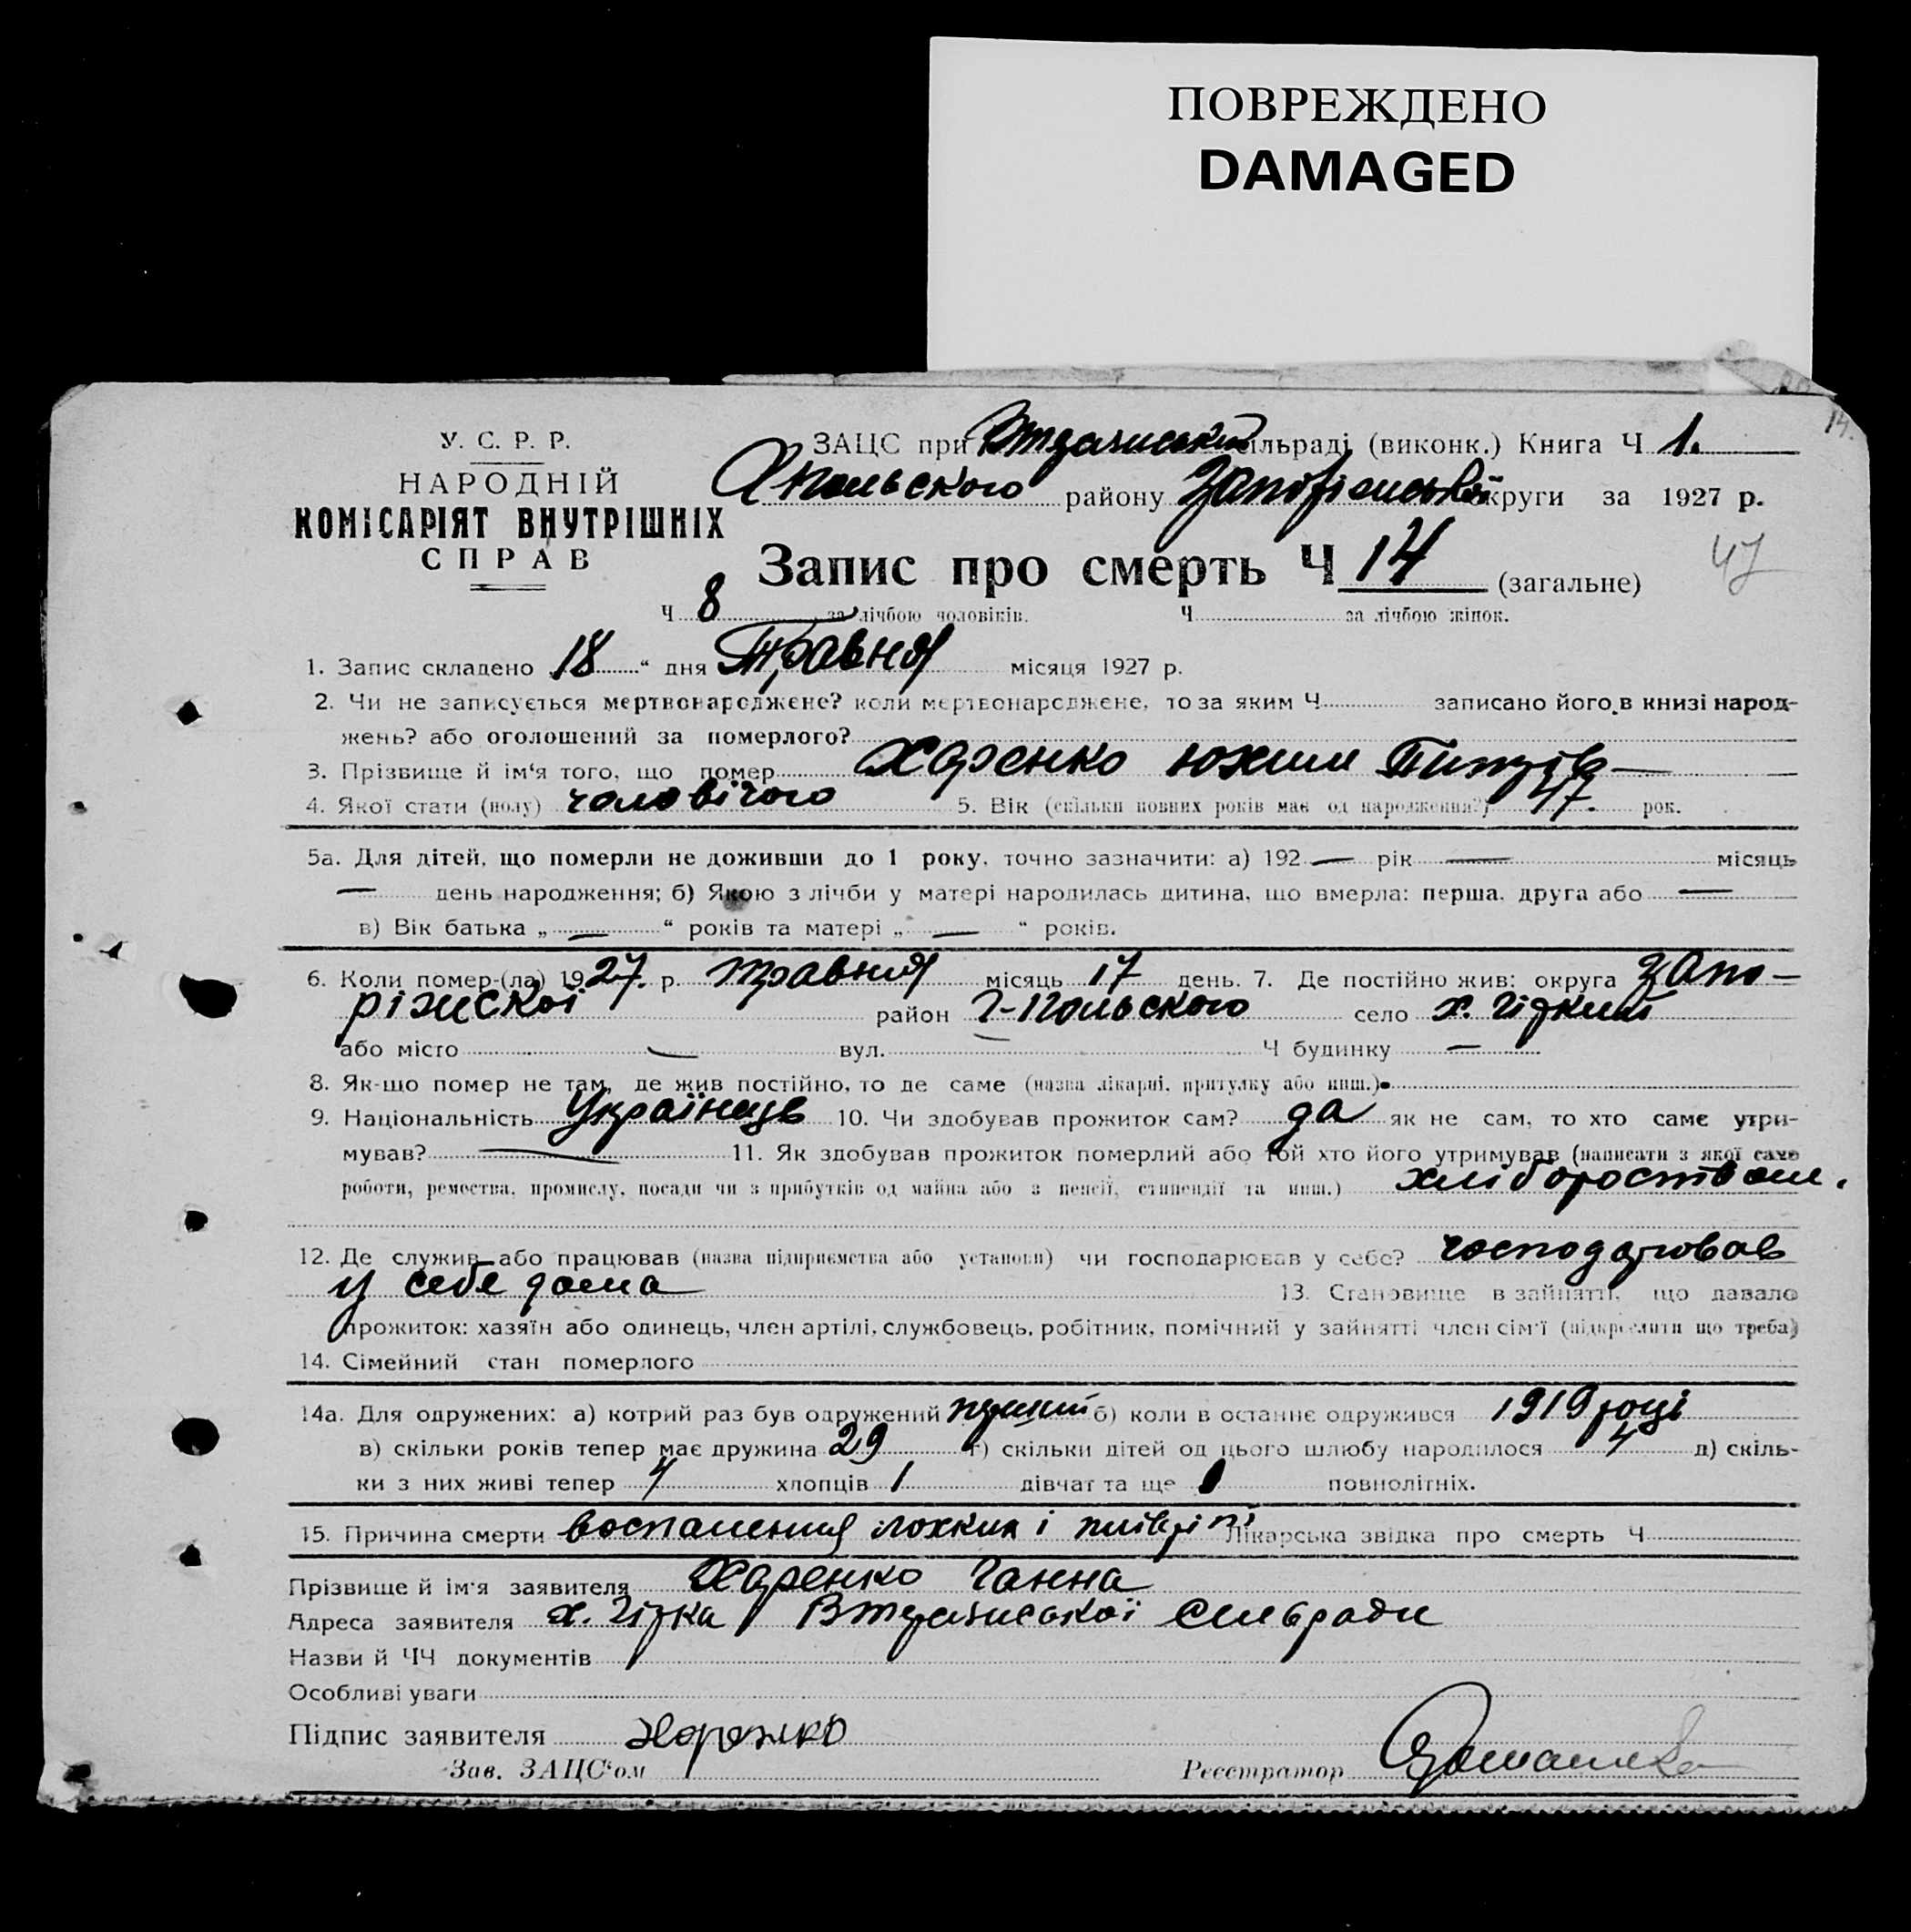 ПОВРЕЖДЕНО
DAMAGED
14.
У. С. Р. Р.
НАРОДНІЙ
КОМІСАРІЯТ ВНУТРІШНІХ
СПРАВ
ЗАЦС при сільраді (виконк.) Книга Ч 1.
району Запоріжської округи за 1927 р.
Запис про смерть Ч 14 (загальне)
47
Ч 8 за лічбою чоловіків. Ч за лічбою жінок.
1. Запис складено 18 “ дня Травня місяця 1927 р.
2. Чи не записується мертвонароджене? коли мертвонароджене, то за яким Ч записано його в книзі народ-
жень? або оголошений за померлого?
3. Прізвище й ім‘я того, що помер Харенко Юхим
4. Якої стати (полу) чоловічого 5. Вік (скільки повних років має од народження?) 47. рок.
5а. Для дітей, що померли не доживши до 1 року, точно зазначити: а) 192 — рік — місяць
— день народження; б) Якою з лічби у матері народилась дитина, що вмерла: перша, друга або —
в) Вік батька „ — “ років та матері „ — “ років.
6. Коли помер-(ла) 1927. р. травня місяць 17 день. 7. Де постійно жив: округа Запо-
ріжскої район Г-Польского село х. Гіркий
або місто — вул. — Ч будинку —
8. Як-що помер не там, де жив постійно, то де саме (назва лікарні, притулку або инш.)
9. Національність Українець 10. Чи здобував прожиток сам? да як не сам, то хто саме утри-
мував? — 11. Як здобував прожиток померлий або той хто його утримував (написати з якої саме
роботи, ремества, промислу, посади чи з прибутків од майна або з пенсії, стипендії та инш.) хліборобством.
12. Де служив або працював (назва підприємства або установи) чи господарював у себе? господарював
у себе дома 13. Становище в зайнятті, що давало
прожиток: хазяїн або одинець, член артілі, службовець, робітник, помічний у зайнятті член сім‘ї (підкреслити що треба)
14. Сімейний стан померлого
14а. Для одружених: а) котрий раз був одружений перший б) коли в останнє одружився 1919 році
в) скільки років тепер має дружина 29 г) скільки дітей од цього шлюбу народилося 4 д) скіль-
ки з них живі тепер 4 хлопців 1 дівчат та ще повнолітніх.
15. Причина смерти воспаления і Лікарська звідка про смерть Ч
Прізвище й ім‘я заявителя Харенко Ганна
Адреса заявителя х. Гірка сильради
Назви й ЧЧ документів
Особливі уваги
Підпис заявителя Харенко
Зав. ЗАЦС‘ом Реєстратор